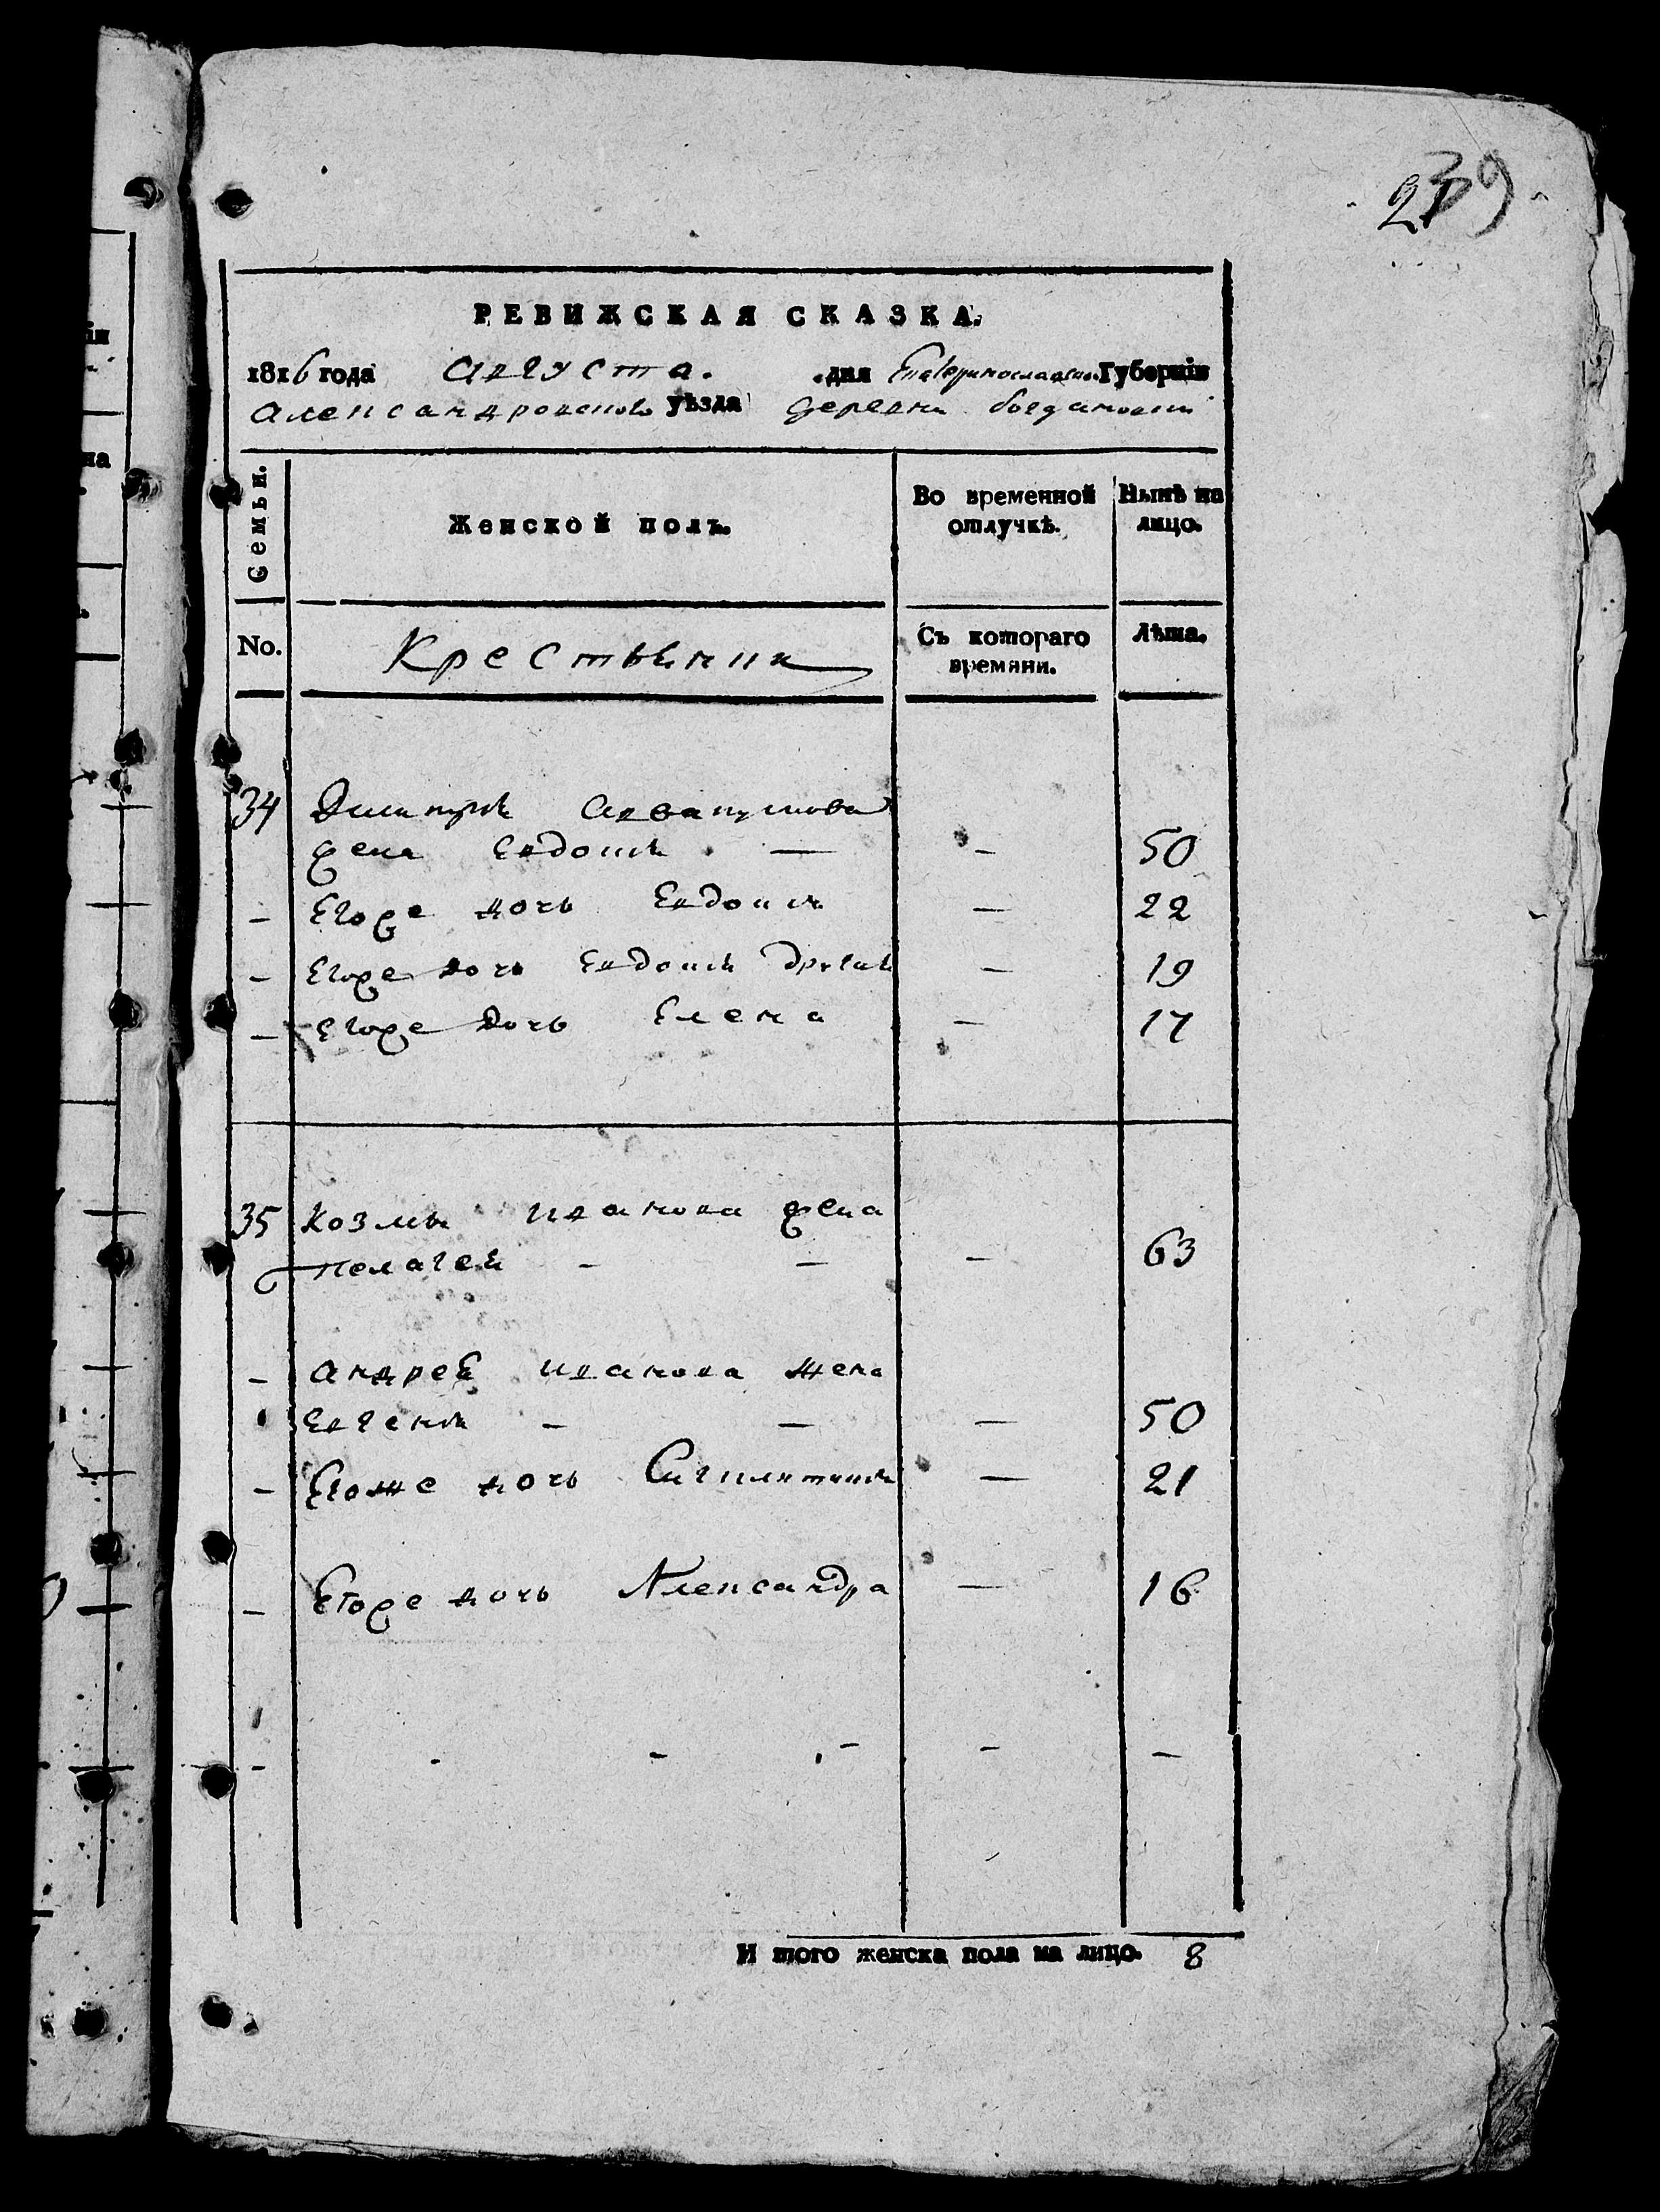 239
РЕВИЖСКАЯ СКАЗКА.
1816 года августа. дня Екатеринославской Губерніи
александровского уѣзда деревни богдановки
Семьи.
Женской полъ.
Во временной отлучкѣ.
Нынѣ на лицо.
No.
Крестьянки
Съ котораго времяни.
Лѣта.
34 Дмитрія Аввакумова
жена Евдокія — — 50
- Егоже дочь Евдокія — 22
- Егоже дочь Евдокія другая — 19
- Егоже дочь Елена — 17
35 Козмы иванова жена
пелагея - — - 63
- андрея иванова жена
Евгенія - — — 50
- Егоже дочь — 21
- Егоже дочь Александра — 16
- - - - - -
И того женска пола на лицо. 8